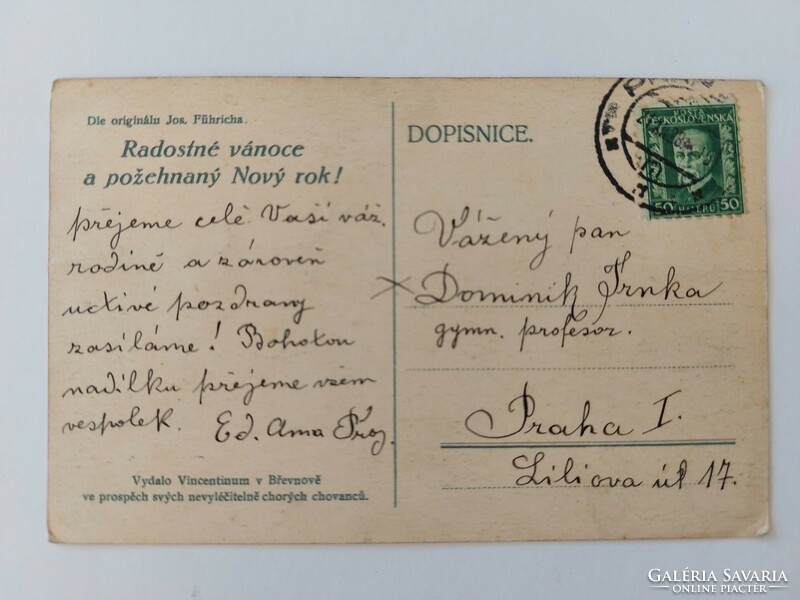 Dle originálu Jos. Führicha.
Radostné vánoce
a požehnaný Nový rok!
přejeme celé Vaší váž.
rodině a zároveň
uctivé pozdravy
zasíláme! Bohatou
nadílku přejeme všem
vespolek. Ed.
Vydalo Vincentinum v Břevnově
ve prospěch svých nevyléčitelně chorých chovanců.
DOPISNICE.
POŠTA
ČESKOSLOVENSKA
50 HALÉŘŮ 50
Vážený pan
Dominik Trnka
gymn. profesor.
Praha I.
Liliova úl 17.
GALÉRIA SAVARIA
ONLINE PIACTÉR